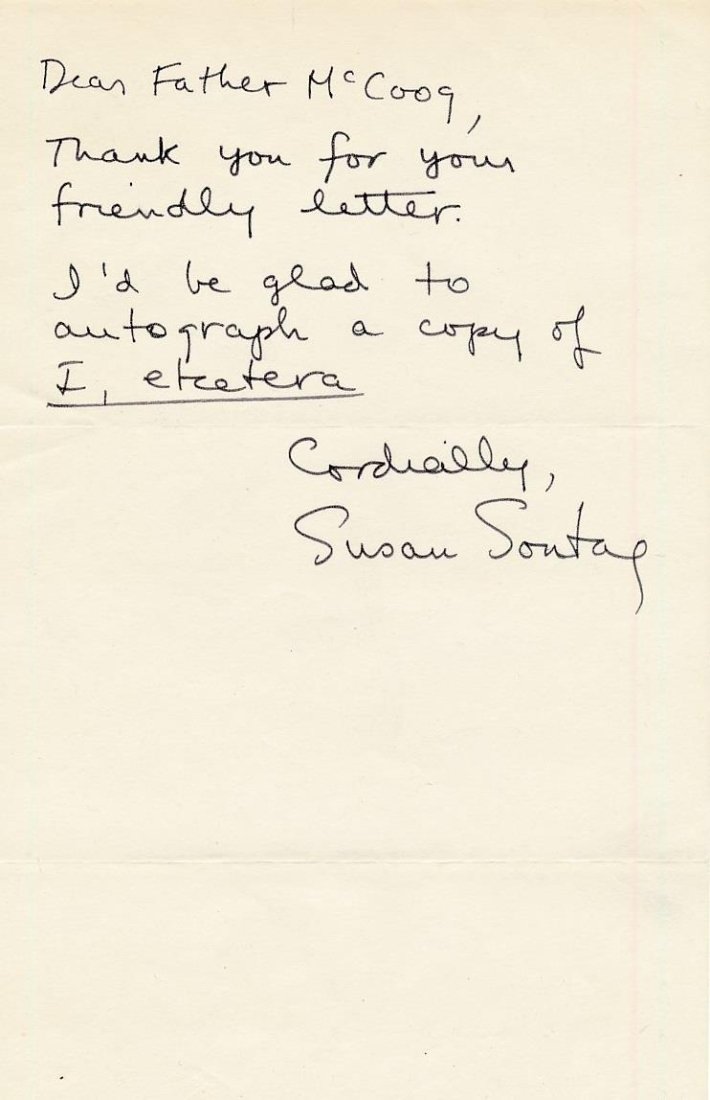 Dear Father McCoog,
Thank you for your
friendly letter.
I'd be glad to
autograph a copy of
I, etcetera
Cordially,
Susan Sontag